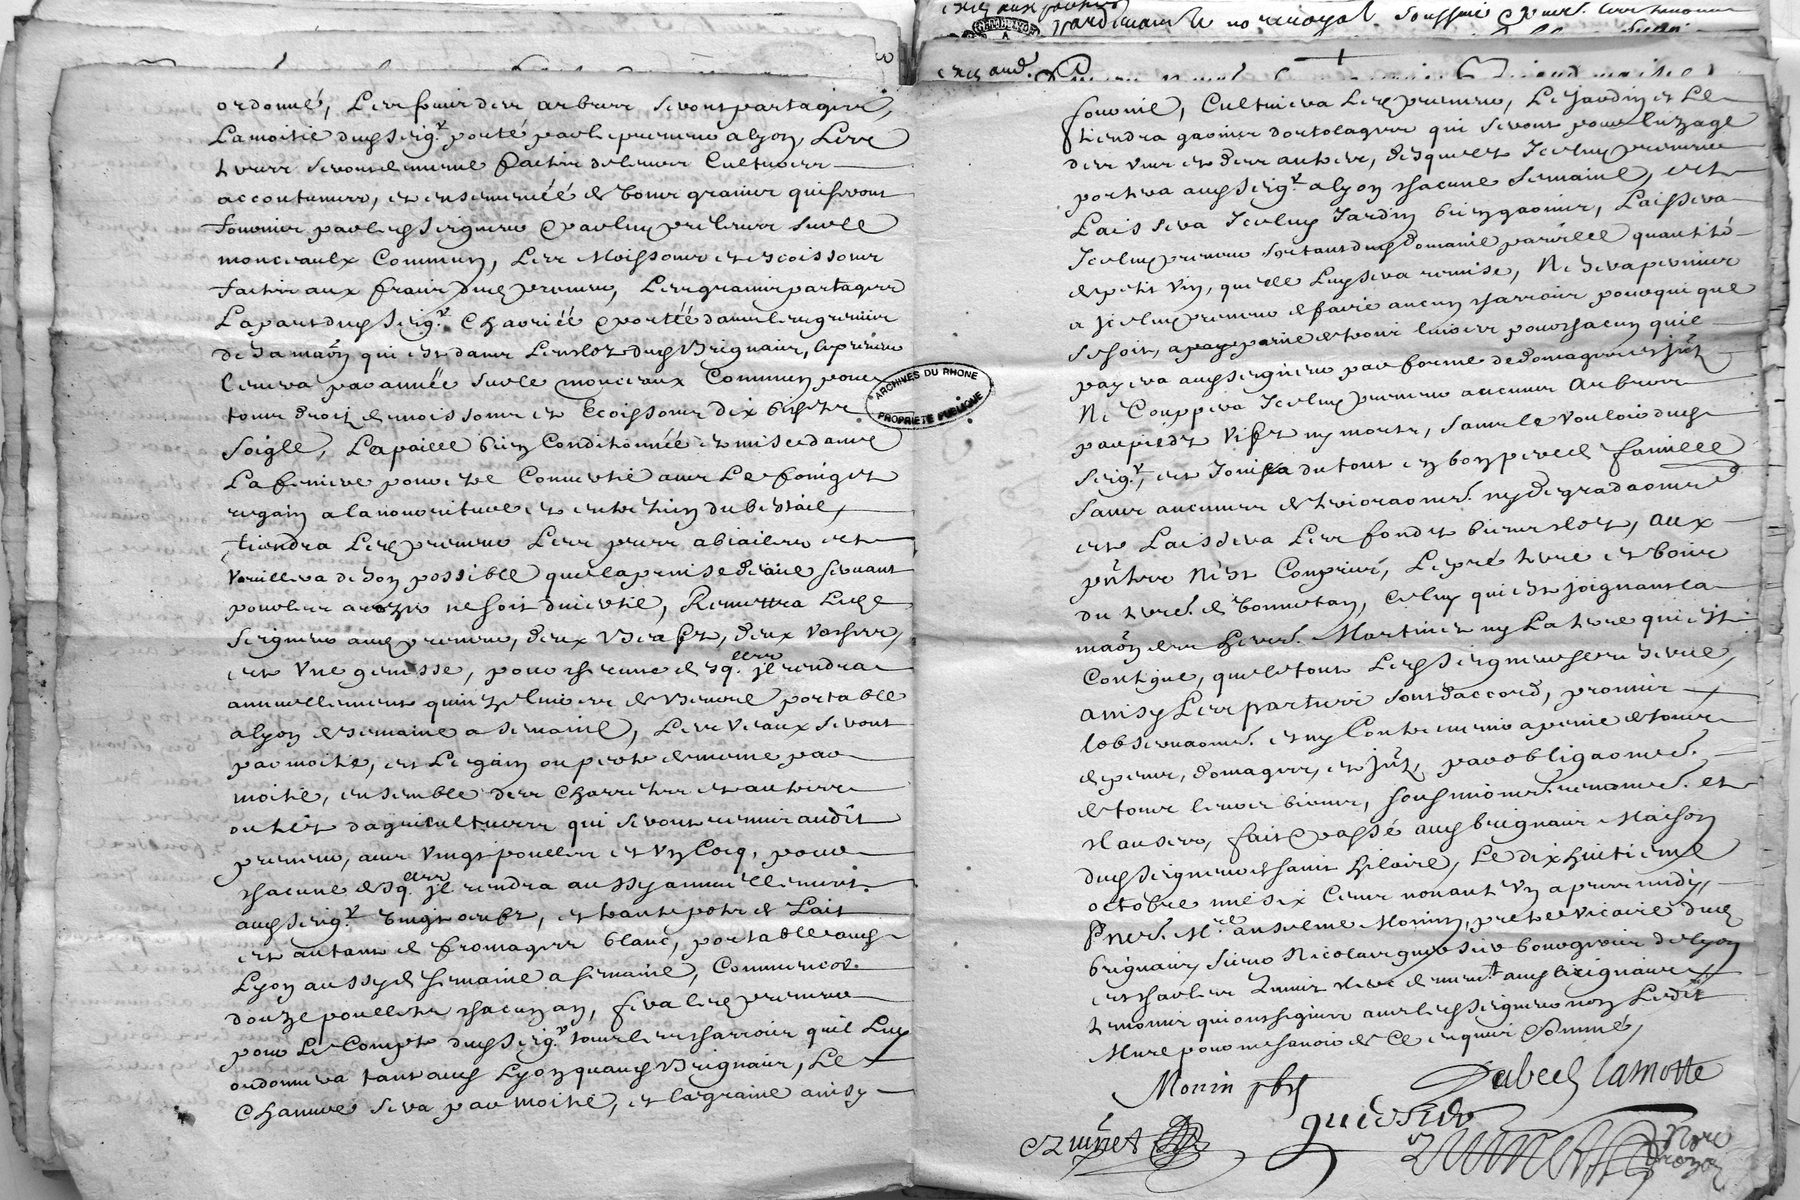 ordonné, Les fruir des arbres seront partagées,
La moitié dud Seigr porté par le preneur a lyon, Les
terres seront de mesme faittes de leurs Cultures
accoutumees, et ensemencéé de bonnes graines qui seront
fournies par led Seigneur et par luy prelevees sur le
monceaulx Commun, Les Moissons et escoissons
faittes aux frais dud preneur, Les graines partagees
La part dud Seigr Chariéé et portéé dans les greniers
de sa maon qui est dans L'enclos dud Brignais, le preneur
levera par année sur le monceaux Commun pour
tous droit de moissons et Ecoissons dix bichets
soigle, La paille bien Conditionnéé et mise dans
La feniere pour estre Convertie avec Le foin et
regain a la nourriture et entretien du bestail,
tiendra Led preneur Les prez abialees et
Veuillera de son possible que la prise d'eau servant
pour les arozer ne soit divertie, Remettra Led
Seigneur aud preneur, deux Boeufs, deux Vaches,
et Une genisse, pour chacune desq. lles je rendra
annuellement quinze livres de Beurre portable
a lyon de semaine a semaine, Les Veaux seront
par moitié, et Le gain ou perte de mesme par
moitié, ensemble des Charrettes et autres
outils dagricultures qui seront remis audit
preneur, avec Vingt poulles et Un Cocq, pour
chacune desq. lles je rendra aussy annuellement
aud Seigr Vingt oeufs, et trante pots de Lait
et autant de fromages blanc, portable aud
Lyon aussy de semaine a semaine, Comme et
douze poullets chacun an, fera led preneur
pour Le Compte dud Seigr tous les charrois quil Luy
ordonnera tant aud Lyon quaud Brignais, Le
Chanvre sera par moitié, et la graine ainsy
fournie, Cultivera Led preneur, Le Jardin et Le
tiendra garnier dortolages qui seront pour l'uzage
des uns et des autres, desquels Iceluy preneur
portera aud Seigr a lyon chacune semaine, et
Laissera Iceluy Jardin bien garnier, Laissera
Iceluy preneur sortant dud Domaine pareille quantité
de petit Vin, quelle Luy sera remise, Ne sera permis
a Iceluy preneur de faire aucun charrois pour qui que
se soit, a peine de trois livres pour chacun quil
payera aud Seigneur par forme de Domages et jnts
Ne Couppera Iceluy preneur aucuns Arbres
par pieds Vifs ny morts, sans le Vouloir dud
Seigr, et Jouira du tout en bon pere de famille
sans aucunes deterioraons ny degradaons
et Laissera Les fonds bien clos, aux
pntes N'est Compris, Le pré terre et bois
du terr. de Bonnetan, Celuy qui est joignant la
maon des hers. Martinet ny La terre qui est
Contigue, que le tout Led Seigneur se reserve,
Ainsy Les parties sont d'accord, promis
lobservaon. et ny Contrevenir a peine de tous
depens, domages, et jnts, par obligaon.
de tous leurs biens, soubmions. renons. et
clauses, fait et passé aud brignais Maison
dud Seigneur saint hilaire, Le dix huitieme
octobre mil six Cens nonant Un apres midy,
Pnes. Mre anselme Monin, prestre Vicaire dud
brignais, sieur Nicolas guessier bourgeois de lyon
et charles Zuinet clerc demeurt aud brignais
temoins qui ont signés avec led Seigneur non Ledit
Mure pour ne sçavoir de Ce enquis & sommé,
Monin pbre
Dubech Lamotte
guessier
C Zuinet
Zuinet
Nore
Royal
ARCHIVES DU RHONE
PROPRIETE PUBLIQUE